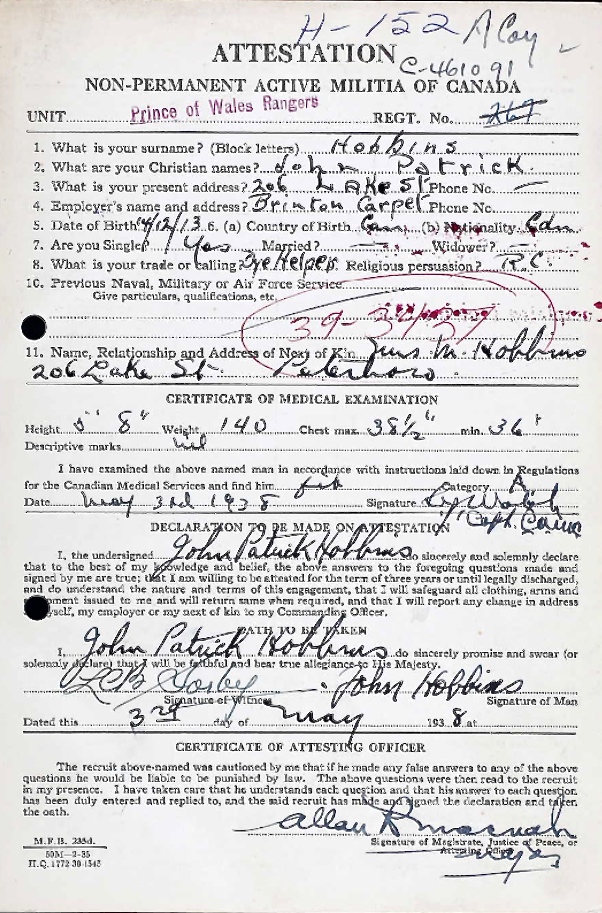 H-152 A Coy
ATTESTATION
C-461091
NON-PERMANENT ACTIVE MILITIA OF CANADA
UNIT Prince of Wales Rangers REGT. No.
1. What is your surname? (Block letters) Hobbins
2. What are your Christian names? John Patrick
3. What is your present address? 206 Lake St Phone No. —
4. Employer's name and address? Brinton Carpet Phone No.
5. Date of Birth 4/12/13 6. (a) Country of Birth Can. (b) Nationality Cdn.
7. Are you Single? Yes Married? — Widower? —
8. What is your trade or calling? Dye Helper Religious persuasion? R.C.
10. Previous Naval, Military or Air Force Service
Give particulars, qualifications, etc.
11. Name, Relationship and Address of Next of Kin M. Hobbins
206 Lake St Peterboro.
CERTIFICATE OF MEDICAL EXAMINATION
Height 5' 8" Weight 140 Chest max. 38½" min. 36"
Descriptive marks nil
I have examined the above named man in accordance with instructions laid down in Regulations
for the Canadian Medical Services and find him fit Category A
Date May 3rd 1938 Signature
Capt.
DECLARATION TO BE MADE ON ATTESTATION
I, the undersigned John Patrick Hobbins do sincerely and solemnly declare
that to the best of my knowledge and belief, the above answers to the foregoing questions made and
signed by me are true; that I am willing to be attested for the term of three years or until legally discharged,
and do understand the nature and terms of this engagement, that I will safeguard all clothing, arms and
pment issued to me and will return same when required, and that I will report any change in address
yself, my employer or my next of kin to my Commanding Officer.
OATH TO BE TAKEN
I, John Patrick Hobbins do sincerely promise and swear (or
solemnly declare) that I will be faithful and bear true allegiance to His Majesty.
John Hobbins
Signature of Witness Signature of Man
Dated this 3rd day of May 1938 at
CERTIFICATE OF ATTESTING OFFICER
The recruit above-named was cautioned by me that if he made any false answers to any of the above
questions he would be liable to be punished by law. The above questions were then read to the recruit
in my presence. I have taken care that he understands each question and that his answer to each question
has been duly entered and replied to, and the said recruit has made and signed the declaration and taken
the oath.
Allan R
Signature of Magistrate, Justice of Peace, or
Attesting Officer
Major
M.F.B. 235d.
50M—2-35
H.Q. 1772-39-1545